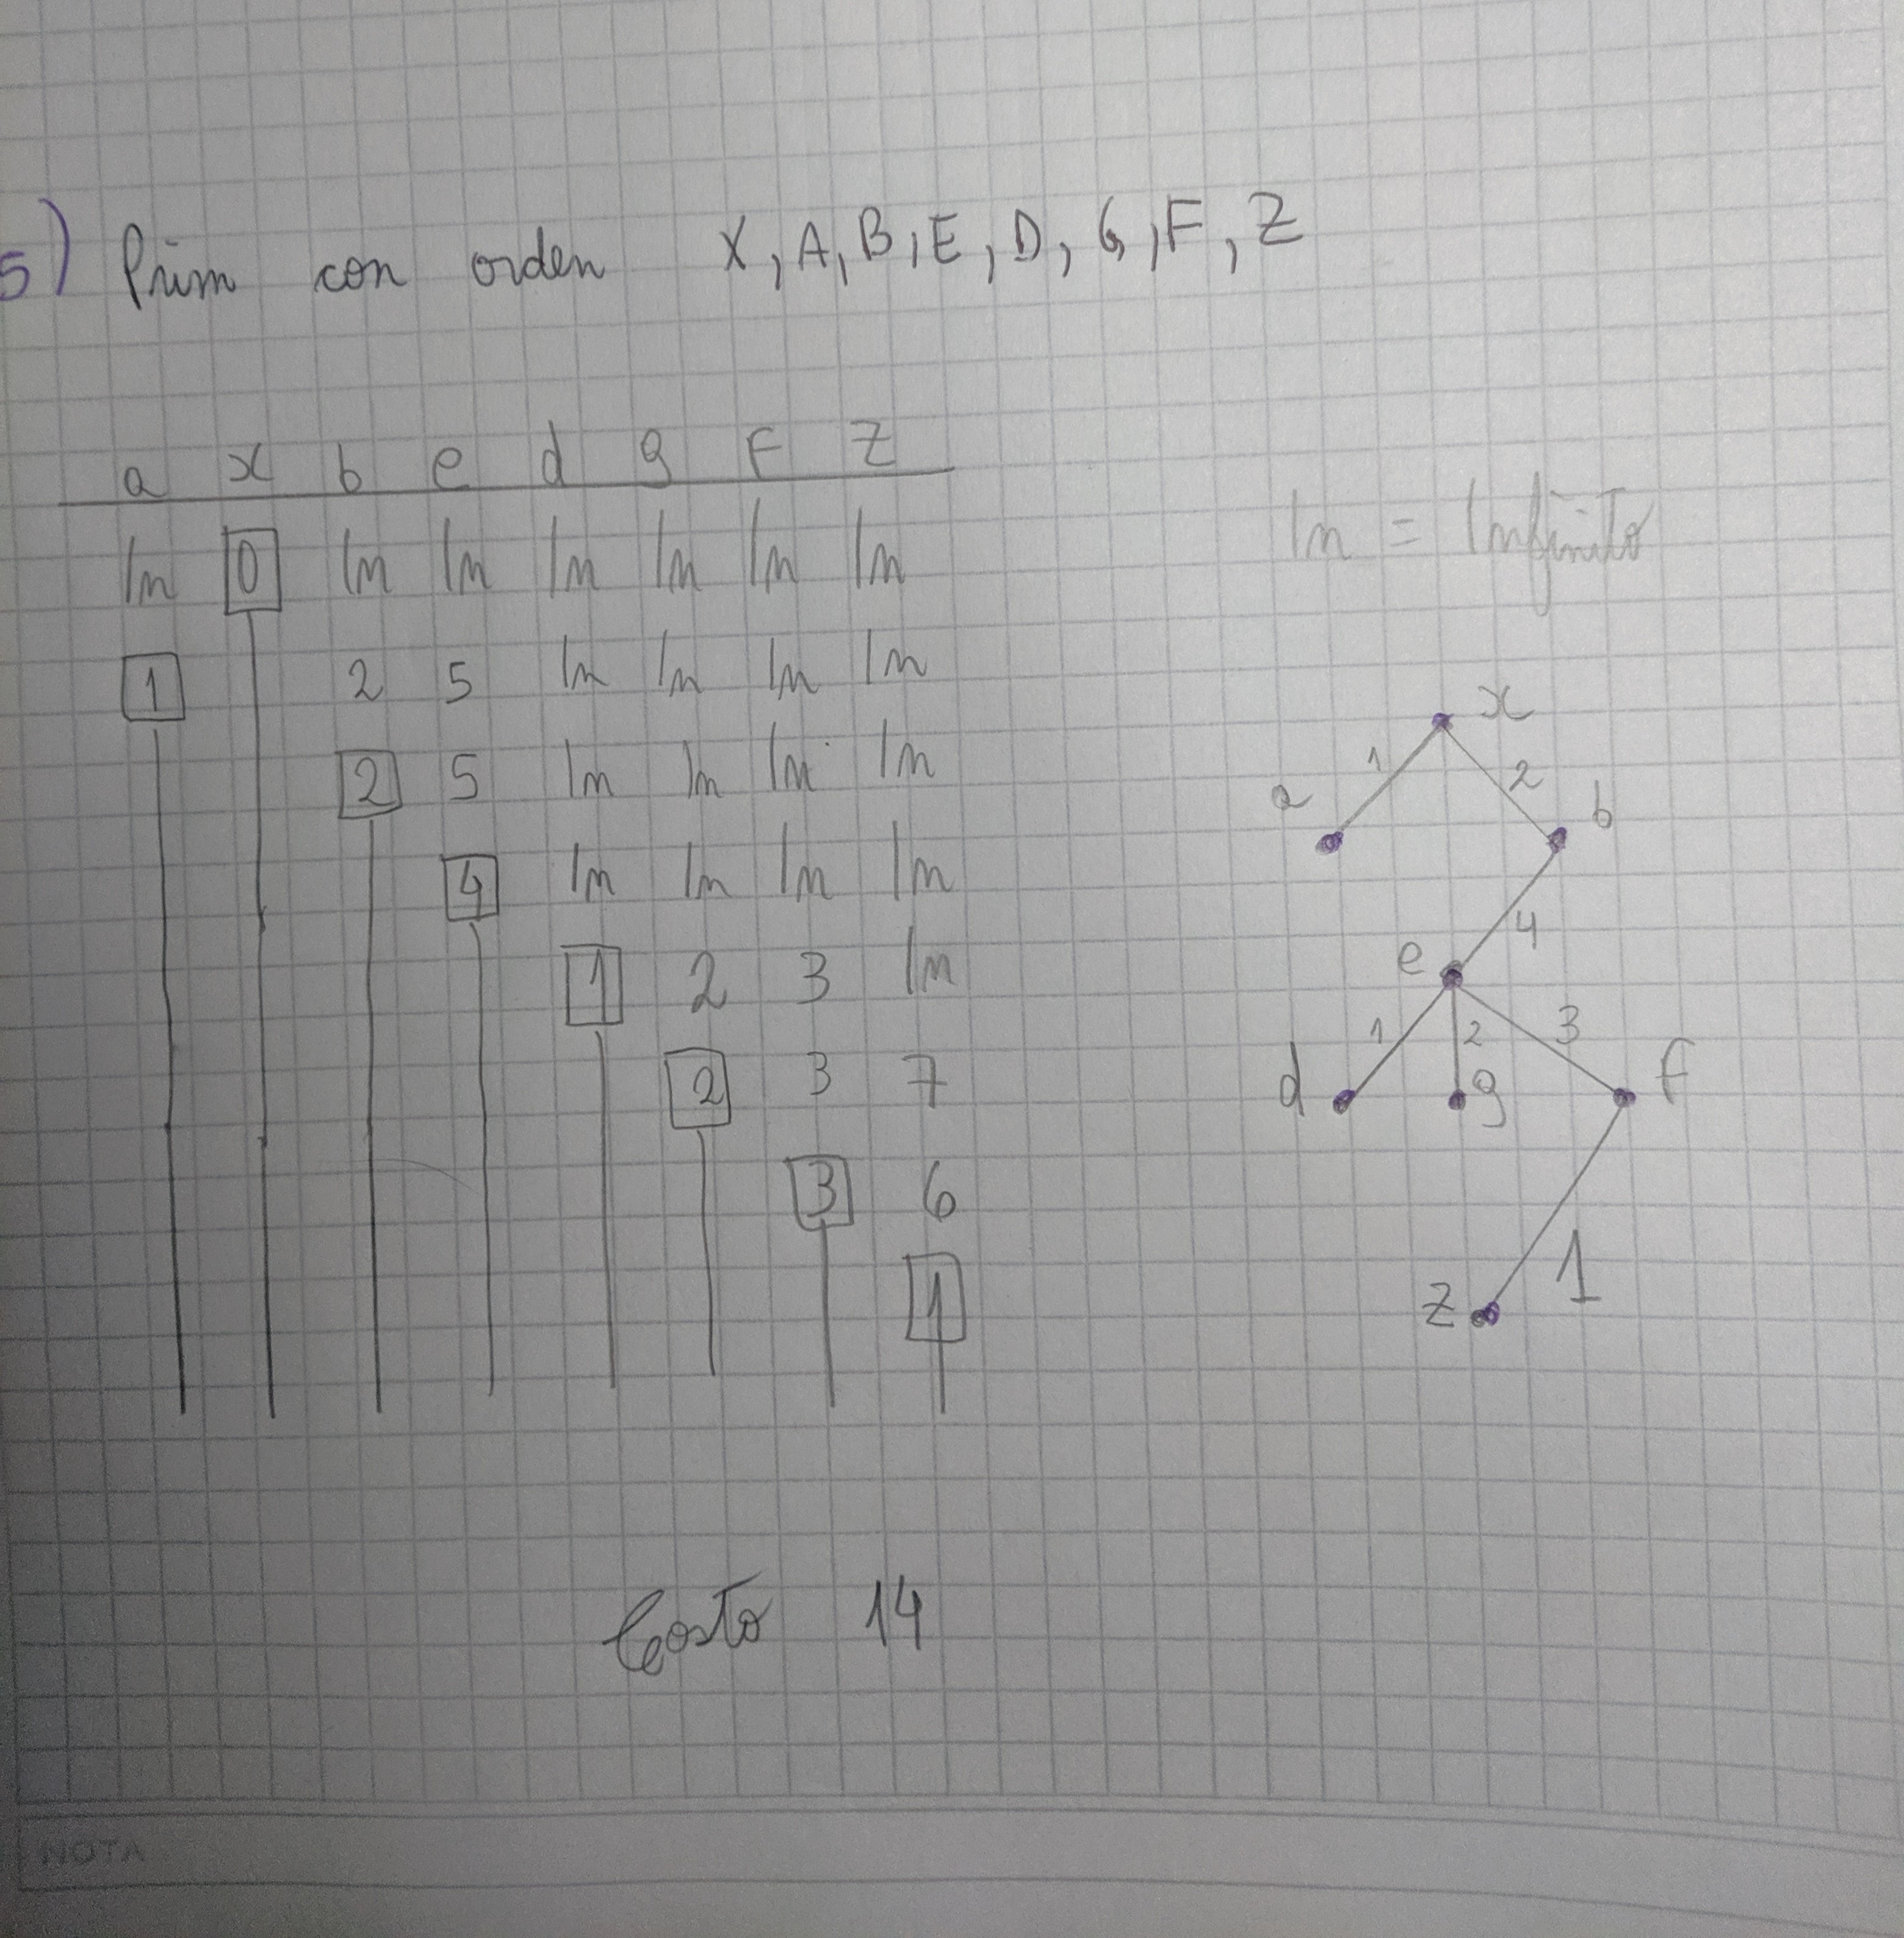 5) Prim con orden X, A, B, E, D, G, F, Z
a x b e d g F Z
In 0 In In In In In In
In = Infinito
1 2 5 In In In In
2 5 In In In In
4 In In In In
1 2 3 In
2 3 7
3 6
1
x
1 2
a b
4
e
1 2 3
d g f
1
z
Costo 14
NOTA